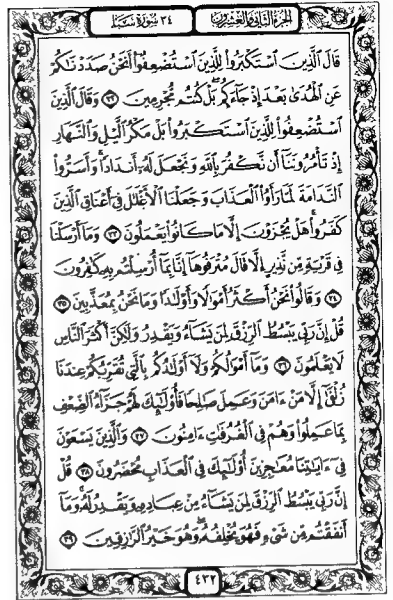 الجزء الثاني والعشرون
٣٤ سورة سبأ
قَالَ ٱلَّذِينَ ٱسْتَكْبَرُوا۟ لِلَّذِينَ ٱسْتُضْعِفُوٓا۟ أَنَحْنُ صَدَدْنَٰكُمْ
عَنِ ٱلْهُدَىٰ بَعْدَ إِذْ جَآءَكُم بَلْ كُنتُم مُّجْرِمِينَ ٣٢ وَقَالَ ٱلَّذِينَ
ٱسْتُضْعِفُوا۟ لِلَّذِينَ ٱسْتَكْبَرُوا۟ بَلْ مَكْرُ ٱلَّيْلِ وَٱلنَّهَارِ
إِذْ تَأْمُرُونَنَآ أَن نَّكْفُرَ بِٱللَّهِ وَنَجْعَلَ لَهُۥٓ أَندَادًا وَأَسَرُّوا۟
ٱلنَّدَامَةَ لَمَّا رَأَوُا۟ ٱلْعَذَابَ وَجَعَلْنَا ٱلْأَغْلَٰلَ فِىٓ أَعْنَاقِ ٱلَّذِينَ
كَفَرُوا۟ هَلْ يُجْزَوْنَ إِلَّا مَا كَانُوا۟ يَعْمَلُونَ ٣٣ وَمَآ أَرْسَلْنَا
فِى قَرْيَةٍ مِّن نَّذِيرٍ إِلَّا قَالَ مُتْرَفُوهَآ إِنَّا بِمَآ أُرْسِلْتُم بِهِۦ كَٰفِرُونَ
٣٤ وَقَالُوا۟ نَحْنُ أَكْثَرُ أَمْوَٰلًا وَأَوْلَٰدًا وَمَا نَحْنُ بِمُعَذَّبِينَ ٣٥
قُلْ إِنَّ رَبِّى يَبْسُطُ ٱلرِّزْقَ لِمَن يَشَآءُ وَيَقْدِرُ وَلَٰكِنَّ أَكْثَرَ ٱلنَّاسِ
لَا يَعْلَمُونَ ٣٦ وَمَآ أَمْوَٰلُكُمْ وَلَآ أَوْلَٰدُكُم بِٱلَّتِى تُقَرِّبُكُمْ عِندَنَا
زُلْفَىٰٓ إِلَّا مَنْ ءَامَنَ وَعَمِلَ صَٰلِحًا فَأُو۟لَٰٓئِكَ لَهُمْ جَزَآءُ ٱلضِّعْفِ
بِمَا عَمِلُوا۟ وَهُمْ فِى ٱلْغُرُفَٰتِ ءَامِنُونَ ٣٧ وَٱلَّذِينَ يَسْعَوْنَ
فِىٓ ءَايَٰتِنَا مُعَٰجِزِينَ أُو۟لَٰٓئِكَ فِى ٱلْعَذَابِ مُحْضَرُونَ ٣٨ قُلْ
إِنَّ رَبِّى يَبْسُطُ ٱلرِّزْقَ لِمَن يَشَآءُ مِنْ عِبَادِهِۦ وَيَقْدِرُ لَهُۥ وَمَآ
أَنفَقْتُم مِّن شَىْءٍ فَهُوَ يُخْلِفُهُۥ وَهُوَ خَيْرُ ٱلرَّٰزِقِينَ ٣٩
٤٣٢